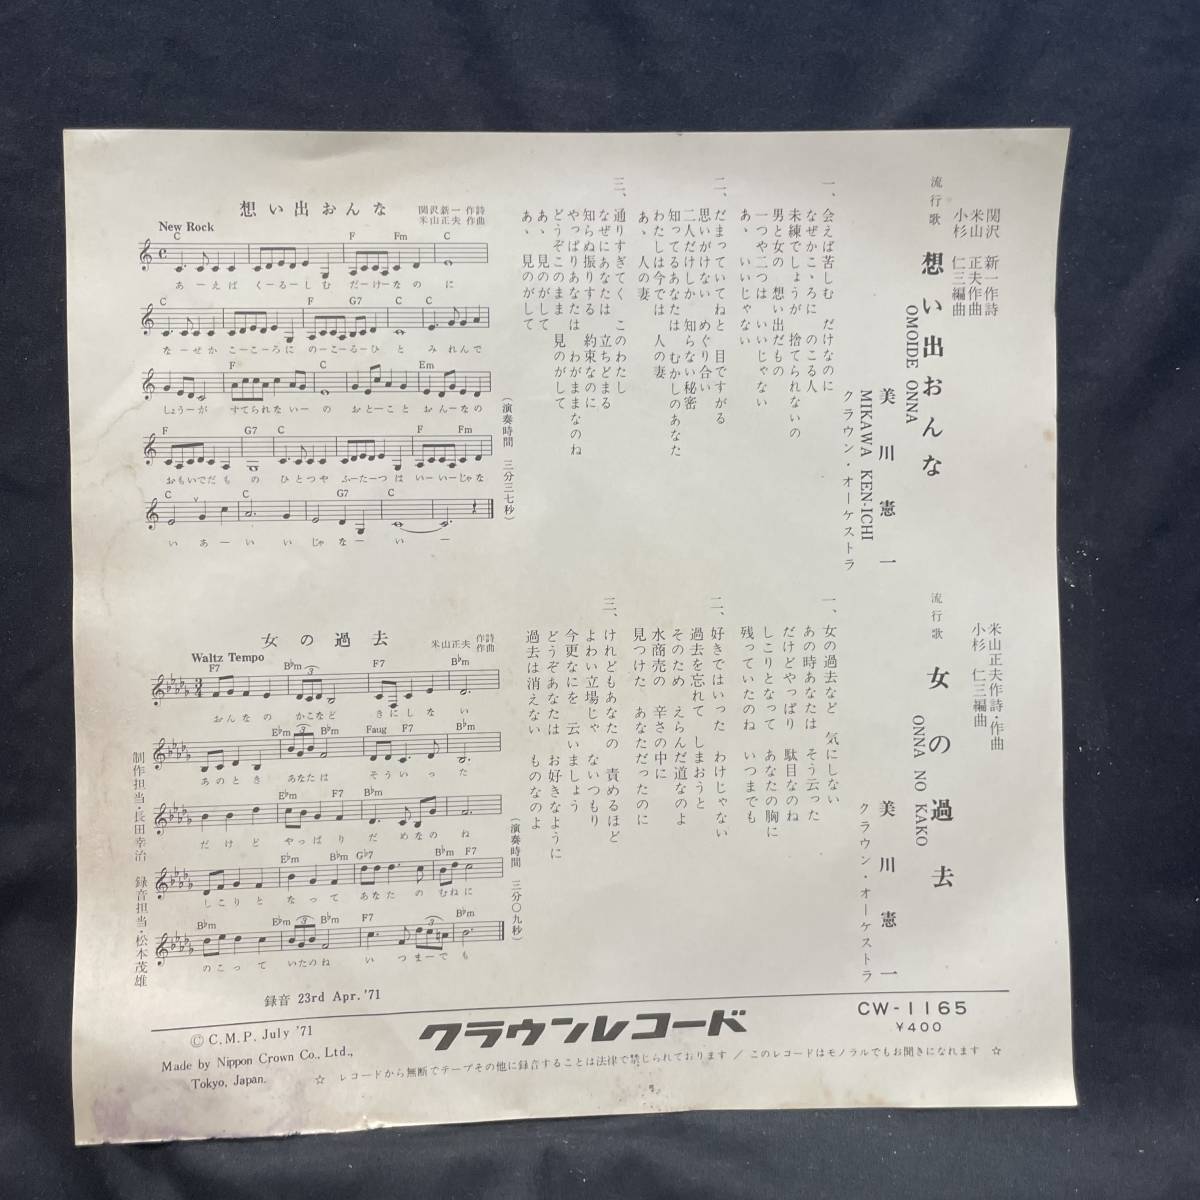 関沢 新一作詩
米山 正夫作曲
小杉 仁三編曲
流行歌 想い出おんな
OMOIDE ONNA
美川憲一
MIKAWA KEN-ICHI
クラウン・オーケストラ
一、会えば苦しむ だけなのに
なぜかこゝろに のこる人
未練でしょうが 捨てられないの
男と女の 想い出だもの
一つや二つは いいじゃない
あゝ いいじゃない
二、だまっていてねと 目ですがる
思いがけない めぐり合い
二人だけしか 知らない秘密
知ってるあなたは むかしのあなた
わたしは今では 人の妻
あゝ 人の妻
三、通りすぎてく このわたし
なぜにあなたは 立ちどまる
知らぬ振りする 約束なのに
やっぱりあなたは わがままなのね
どうぞこのまま 見のがして
あゝ 見のがして
あゝ 見のがして
(演奏時間 三分三七秒)
想い出おんな
関沢新一 作詩
米山正夫 作曲
New Rock
C F Fm C
あーえば くーるーしむ だーけーなの に
C F G7 C C
なーぜか こーこーろに のーこーるーひ と みれんで
F C Em
しょうーが すてられないーの おとーこと おんーなの
F G7 C F G7
おもいでだも の ひとつや ふーたーつ は いーいーじゃな
C G7 C
い あー い い じゃ な ー い ー
米山正夫作詩・作曲
小杉 仁三編曲
流行歌 女の過去
ONNA NO KAKO
美川憲一
クラウン・オーケストラ
一、女の過去など 気にしない
あの時あなたは そう云った
だけどやっぱり 駄目なのね
しこりとなって あなたの胸に
残っていたのね いつまでも
二、好きではいった わけじゃない
過去を忘れて しまおうと
そのため えらんだ道なのよ
水商売の 辛さの中に
見つけた あなただったのに
三、けれどもあなたの 責めるほど
よわい立場じゃ ないつもり
今更なにを 云いましょう
どうぞあなたは お好きなように
過去は消えない ものなのよ
(演奏時間 三分〇九秒)
女の過去
米山正夫 作詩 作曲
Waltz Tempo
F7 B♭m F7 B♭m
おんなの かこなど きにしない
E♭m B♭m Faug F7 B♭m
あのとき あなたは そういった
E♭m F7 B♭m
だけど やっぱり だめなの ね
E♭m B♭m G♭7 B♭m F7
しこりと なって あなた の むねに
B♭m E♭m B♭m F7 B♭m
のこって いたのね い つまーでも
制作担当・長田幸治 録音担当・松本茂雄
録音 23rd Apr. '71
Ⓒ C.M.P. July '71
Made by Nippon Crown Co., Ltd.,
Tokyo, Japan.
クラウンレコード
CW-1165
¥400
☆ レコードから無断でテープその他に録音することは法律で禁じられております / このレコードはモノラルでもお聞きになれます ☆